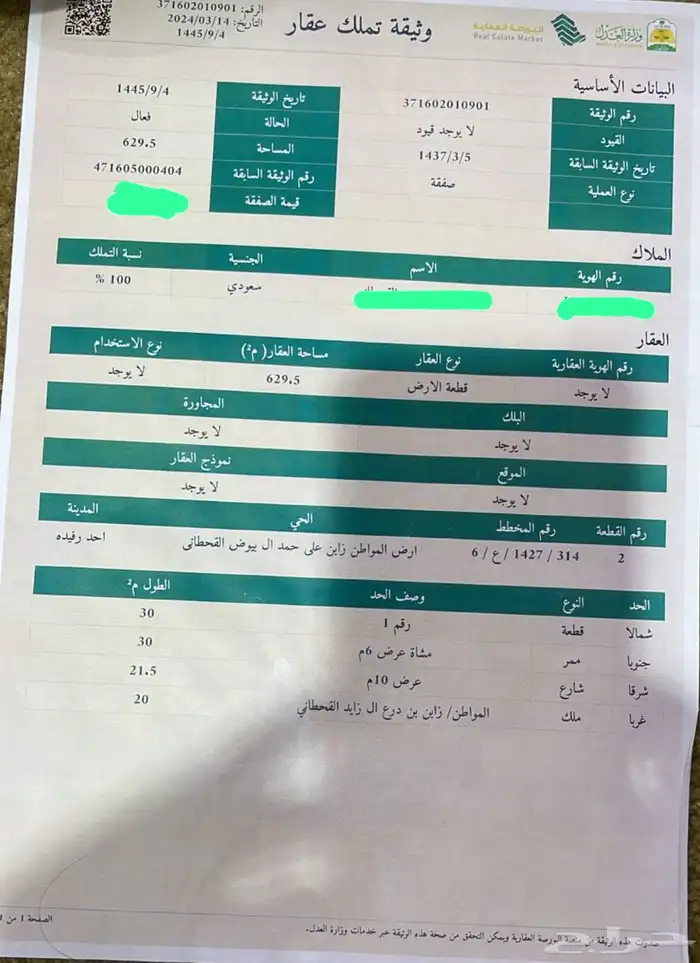 وزارة العدل
Ministry of Justice
البورصة العقارية
Real Estate Market
وثيقة تملك عقار
الرقم: 371602010901
التاريخ: 2024/03/14
1445/9/4
البيانات الأساسية
رقم الوثيقة 371602010901 تاريخ الوثيقة 1445/9/4
القيود لا يوجد قيود الحالة فعال
تاريخ الوثيقة السابقة 1437/3/5 المساحة 629.5
نوع العملية صفقة رقم الوثيقة السابقة 471605000404
قيمة الصفقة
الملاك
رقم الهوية الاسم الجنسية نسبة التملك
سعودي 100 %
العقار
رقم الهوية العقارية نوع العقار مساحة العقار( م²) نوع الاستخدام
لا يوجد قطعة الارض 629.5 لا يوجد
البلك المجاورة
لا يوجد لا يوجد
الموقع نموذج العقار
لا يوجد لا يوجد
رقم القطعة رقم المخطط الحي المدينة
2 314 / 1427 / ع / 6 ارض المواطن زابن على حمد ال بيوض القحطانى احد رفيده
الحد النوع وصف الحد الطول م²
شمالا قطعة رقم 1 30
جنوبا ممر مشاة عرض 6م 30
شرقا شارع عرض 10م 21.5
غربا ملك المواطن/ زابن بن درع ال زايد القحطاني 20
صدرت هذه الوثيقة من منصة البورصة العقارية ويمكن التحقق من صحة هذه الوثيقة عبر خدمات وزارة العدل.
الصفحة 1 من 1
حراج